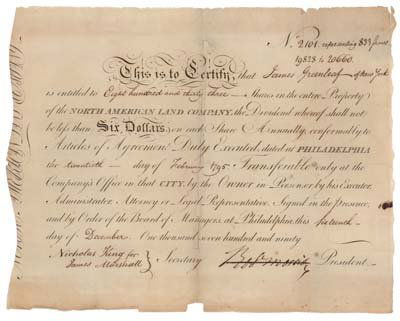 No. 2101. representing 833 Shares
19828 to 20660.
This is to Certify, that James Greenleaf of New York
is entitled to Eight hundred and thirty three Shares in the entire Property
of the NORTH AMERICAN LAND COMPANY, the Dividend whereof shall not
be less than Six Dollars, on each Share Annually, conformably to
Articles of Agreement Duly Executed, dated at PHILADELPHIA
the twentieth day of February 1795 Transferable only at the
Company's Office in that CITY, by the Owner in Person or by his Executor,
Administrator Attorney or Legal Representative. Signed in the presence,
and by Order of the Board of Managers, at Philadelphia, this sixteenth
day of December One thousand seven hundred and ninety
Nicholas King for
James Marshall } Secretary Robt Morris President